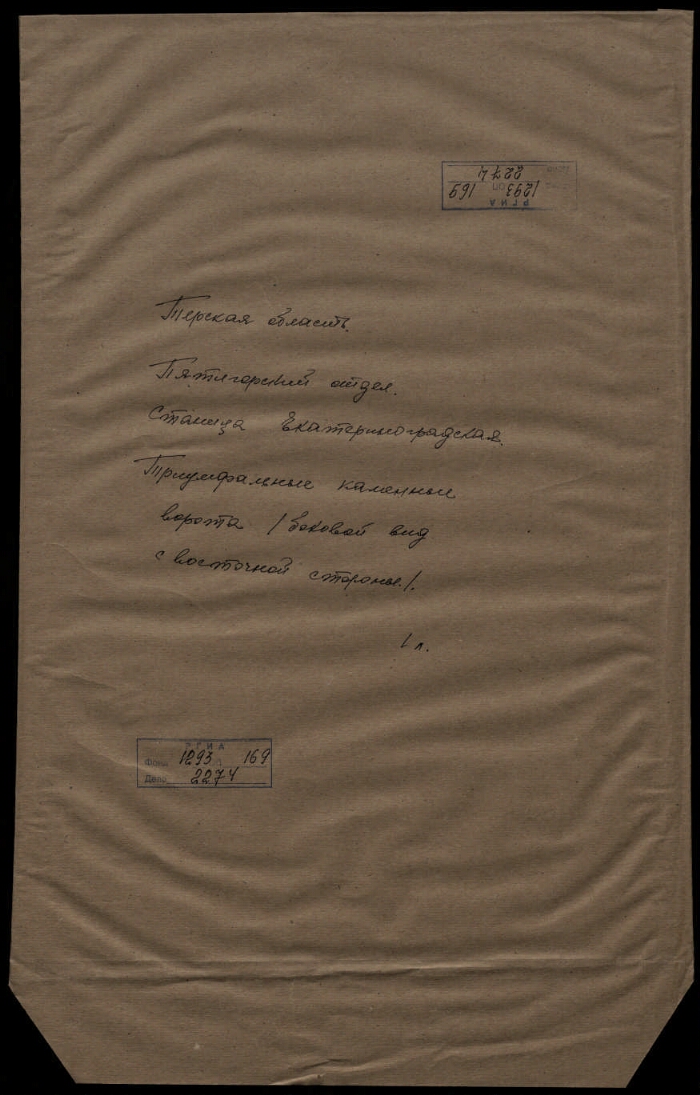 РГИА
Фонд 1293 оп 169
Дело 2274
Терская область.
Пятигорский отдел.
Станица Екатериноградская.
Триумфальные каменные
ворота /боковой вид
с восточной стороны./.
1 л.
РГИА
Фонд 1293 оп 169
Дело 2274